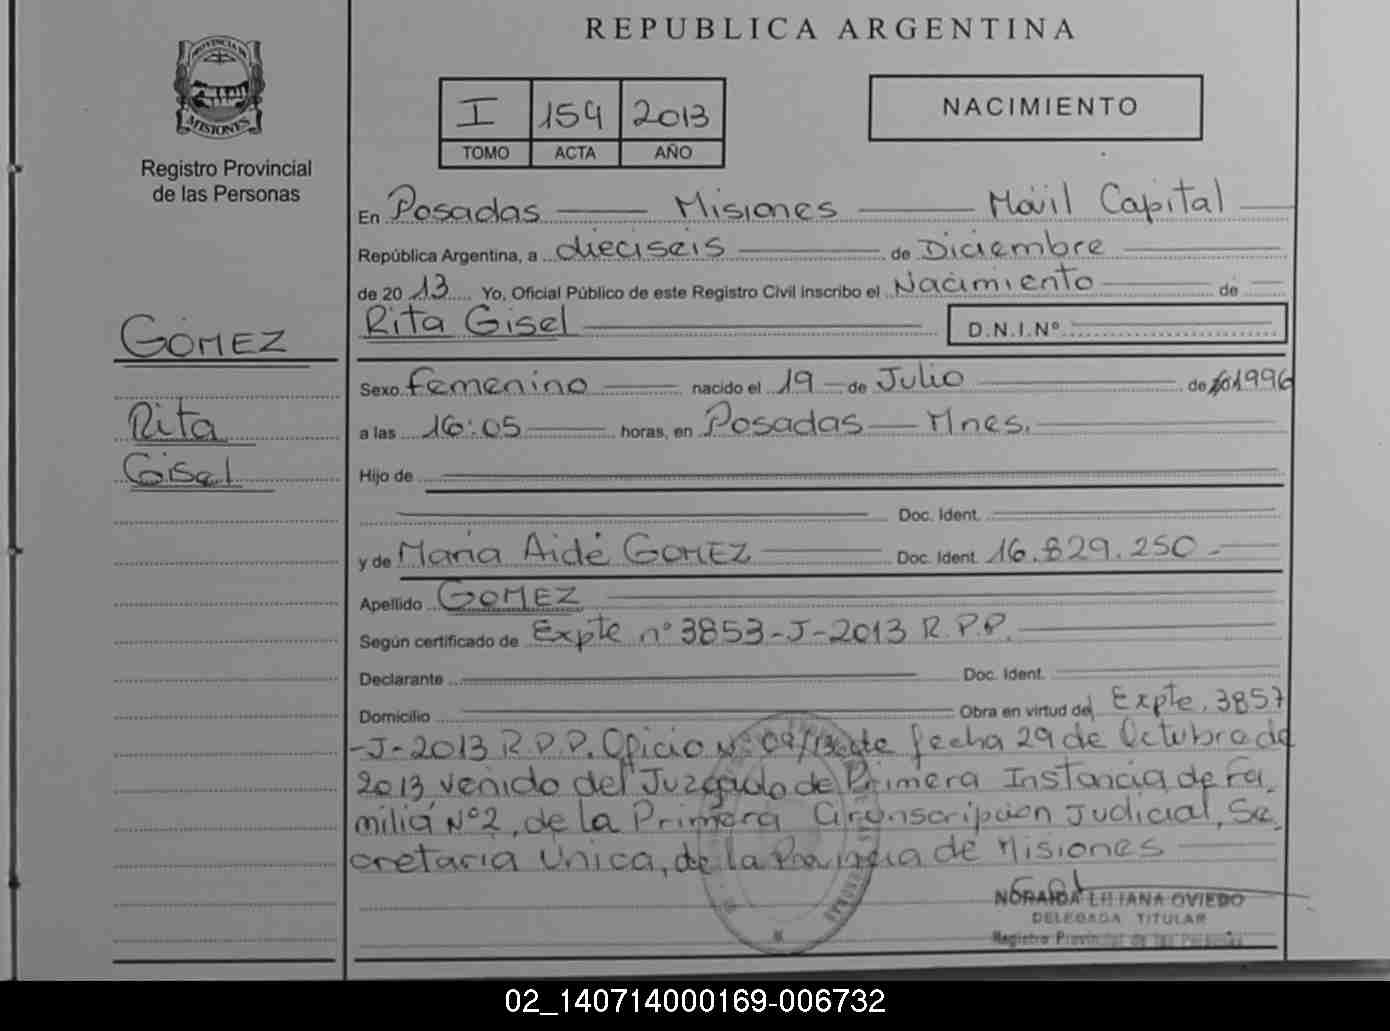 REPUBLICA ARGENTINA
PROVINCIA DE
MISIONES
Registro Provincial
de las Personas
I 154 2013
TOMO ACTA AÑO
NACIMIENTO
En Posadas Misiones Móvil Capital
República Argentina, a dieciseis de Diciembre
de 2013 Yo, Oficial Público de este Registro Civil inscribo el Nacimiento de
Rita Gisel D.N.I.Nº
GOMEZ
Rita
Gisel
Sexo Femenino nacido el 19 de Julio de 1996
a las 16:05 horas, en Posadas Mnes.
Hijo de
Doc. Ident.
y de María Aidé GOMEZ Doc. Ident. 16.829.250.-
Apellido GOMEZ
Según certificado de Expte nº 3853-J-2013 R.P.P.
Declarante Doc. Ident.
Domicilio Obra en virtud del Expte. 3857
-J-2013 R.P.P. Oficio Nº de fecha 29 de Octubre de
2013 venido del Juzgado de Primera Instancia de Fa-
milia Nº2, de la Primera Circunscripcion Judicial, Se-
cretaria Unica, de la Provincia de Misiones
NORAIDA LILIANA OVIEDO
DELEGADA TITULAR
Registro Provincial de las Personas
02_140714000169-006732